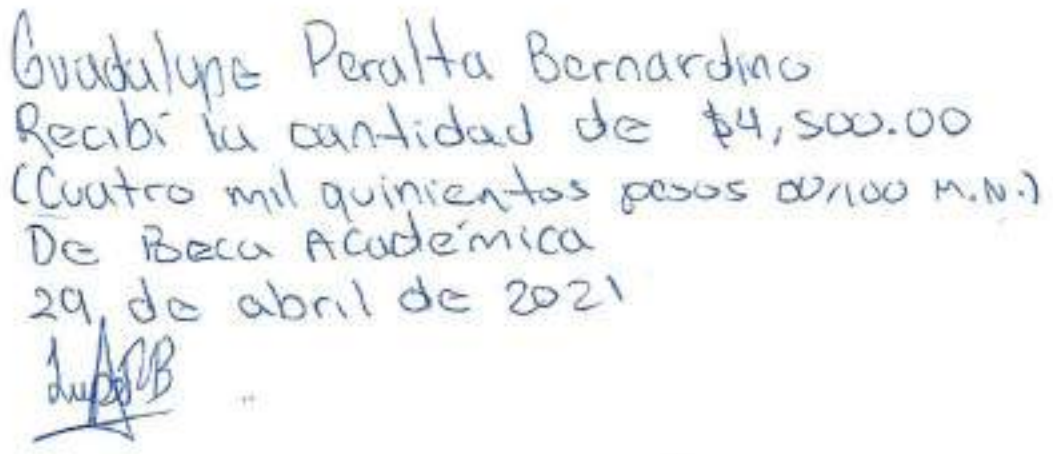 Guadalupe Peralta Bernardino
Recibí la cantidad de $4,500.00
(Cuatro mil quinientos pesos 00/100 M.N.)
De Beca Académica
29 de abril de 2021
LupePB